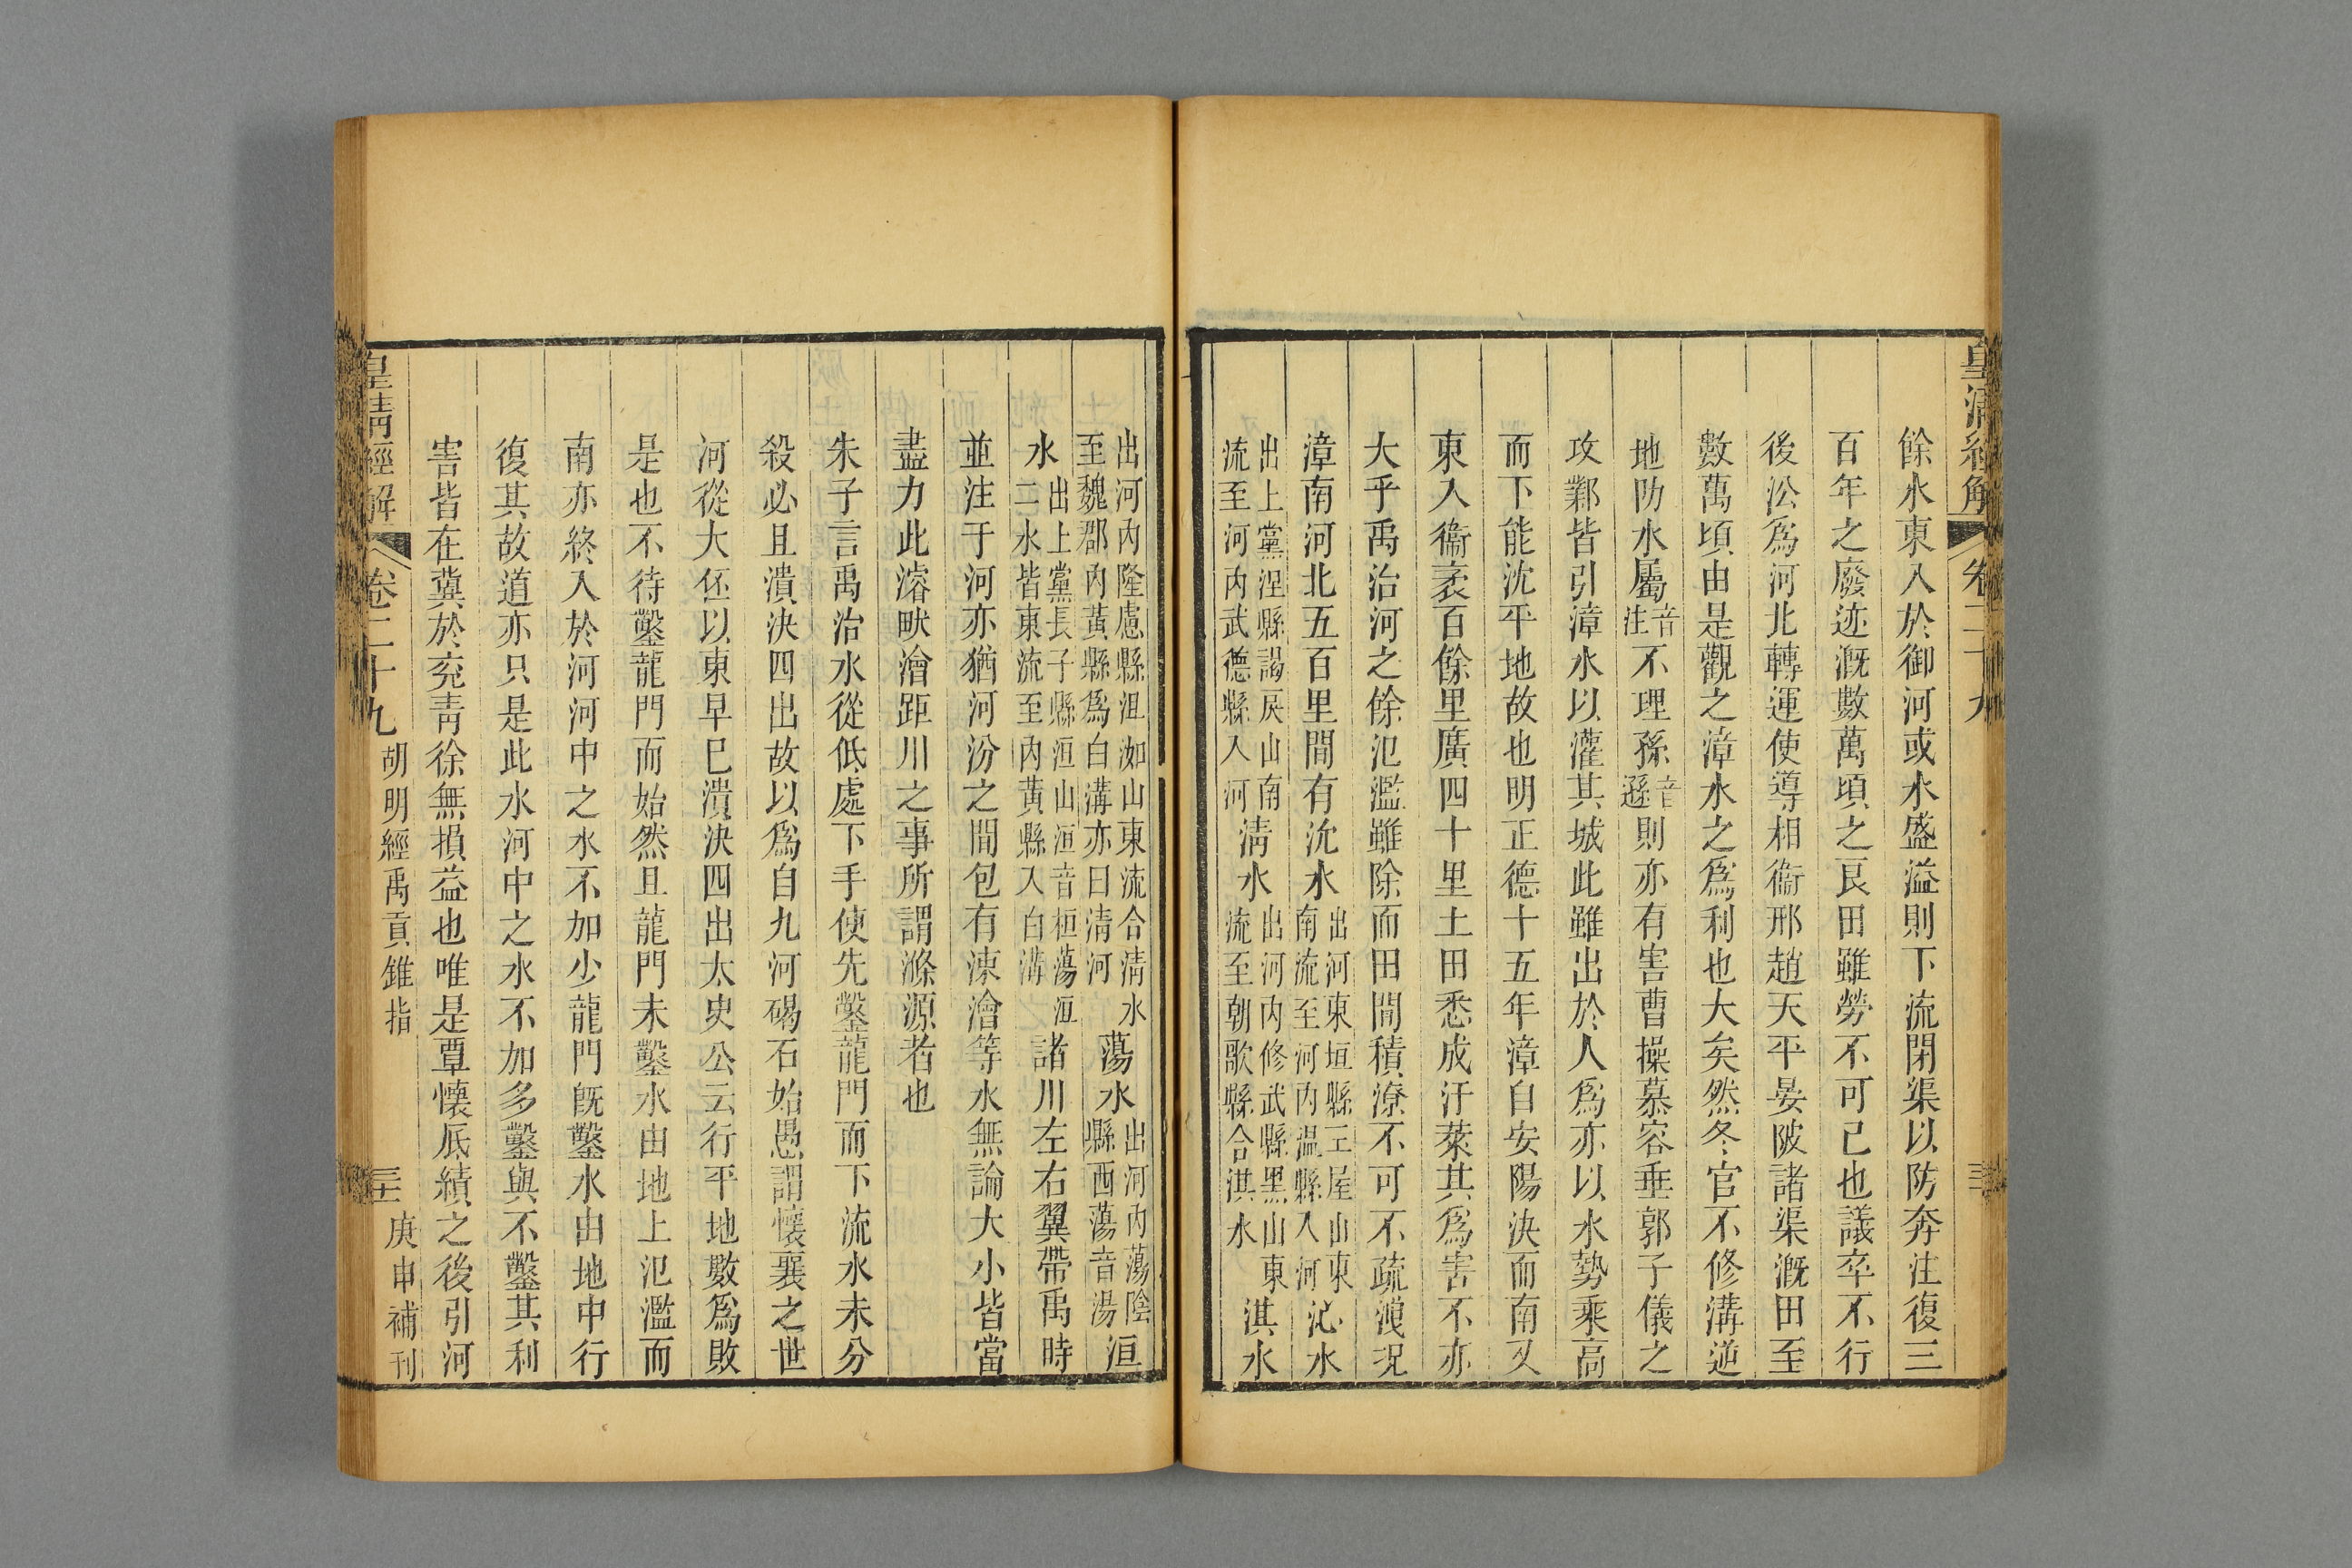 皇清經解 卷二十九
餘水東入於御河或水盛溢則下流閉渠以防奔注復三
百年之廢迹溉數萬頃之良田雖勞不可已也議卒不行
後㳂爲河北轉運使導相衞邢趙天平晏陂諸渠溉田至
數萬頃由是觀之漳水之爲利也大矣然冬官不修溝逆
地防水屬音注不理孫音遜則亦有害曹操慕容垂郭子儀之
攻鄴皆引漳水以灌其城此雖出於人爲亦以水勢乘高
而下能沈平地故也明正德十五年漳自安陽決而南又
東入衞袤百餘里廣四十里土田悉成汙萊其爲害不亦
大乎禹治河之餘氾濫雖除而田閒積潦不可不疏漊況
漳南河北五百里間有沇水出河東垣縣王屋山東南流至河內温縣入河沁水
出上黨涅縣謁戾山南流至河內武德縣入河淸水出河內修武縣黑山東流至朝歌縣合淇水淇水
出河內隆慮縣沮洳山東流合淸水至魏郡內黃縣爲白溝亦曰淸河蕩水出河內蕩陰縣西蕩音湯洹
水出上黨長子縣洹山洹音桓蕩洹二水皆東流至內黃縣入白溝諸川左右翼帶禹時
並注于河亦猶河汾之間包有涑澮等水無論大小皆當
盡力此濬畎澮距川之事所謂滌源者也
朱子言禹治水從低處下手使先鑿龍門而下流水未分
殺必且潰決四出故以爲自九河碣石始愚謂懷襄之世
河從大伾以東早巳潰決四出太史公云行平地數爲敗
是也不待鑿龍門而始然且龍門未鑿水由地上氾濫而
南亦終入於河河中之水不加少龍門旣鑿水由地中行
復其故道亦只是此水河中之水不加多鑿與不鑿其利
害皆在冀於兗靑徐無損益也唯是覃懷厎績之後引河
皇清經解 卷二十九 胡明經禹貢錐指 庚申補刊